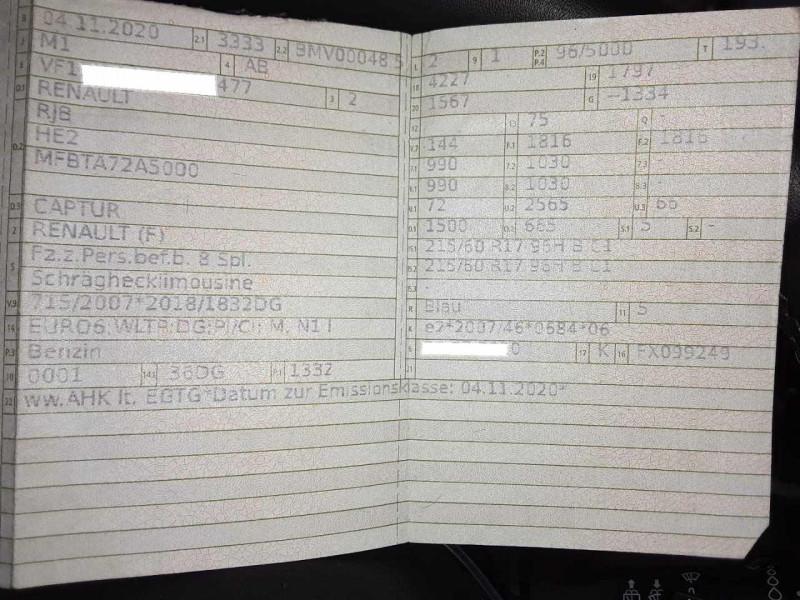 B 04.11.2020 2.1 3333 2.2 BMV00048 5
J M1 4 AB
E VF1 477
D.1 RENAULT 3 2
RJB
D.2 HE2
MFBTA72A5000
D.3 CAPTUR
2 RENAULT (F)
5 Fz.z.Pers.bef.b. 8 Spl.
Schräghecklimousine
V.9 715/2007*2018/1832DG
14 EURO6;WLTP;DG;PI/CI; M, N1 I
P.3 Benzin
10 0001 14.1 36DG P.1 1332
22 ww.AHK lt. EGTG*Datum zur Emissionsklasse: 04.11.2020*
L 2 9 1 P.2 P.4 96/5000 T 193.
18 4227 19 1797
20 1567 G -1334
12 - O 75 Q -
V.7 144 F.1 1816 F.2 1816
7.1 990 7.2 1030 7.3 -
8.1 990 8.2 1030 8.3 -
U.1 72 U.2 2565 U.3 66
O.1 1500 O.2 665 S.1 5 S.2 -
15.1 215/60 R17 96H B C1
15.2 215/60 R17 96H B C1
15.3 -
R Blau 11 5
K e2*2007/46*0684*06
6 0 17 K 16 FX099249
21